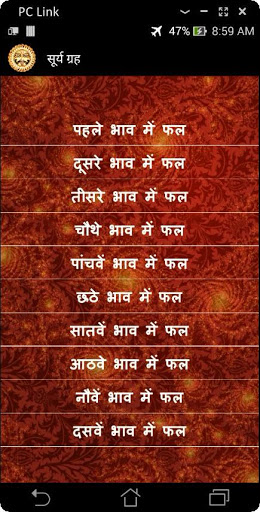 PC Link
47% 8:59 AM
सूर्य ग्रह
पहले भाव में फल
दूसरे भाव में फल
तीसरे भाव में फल
चौथे भाव में फल
पांचवें भाव में फल
छठे भाव में फल
सातवें भाव में फल
आठवे भाव में फल
नौवें भाव में फल
दसवें भाव में फल